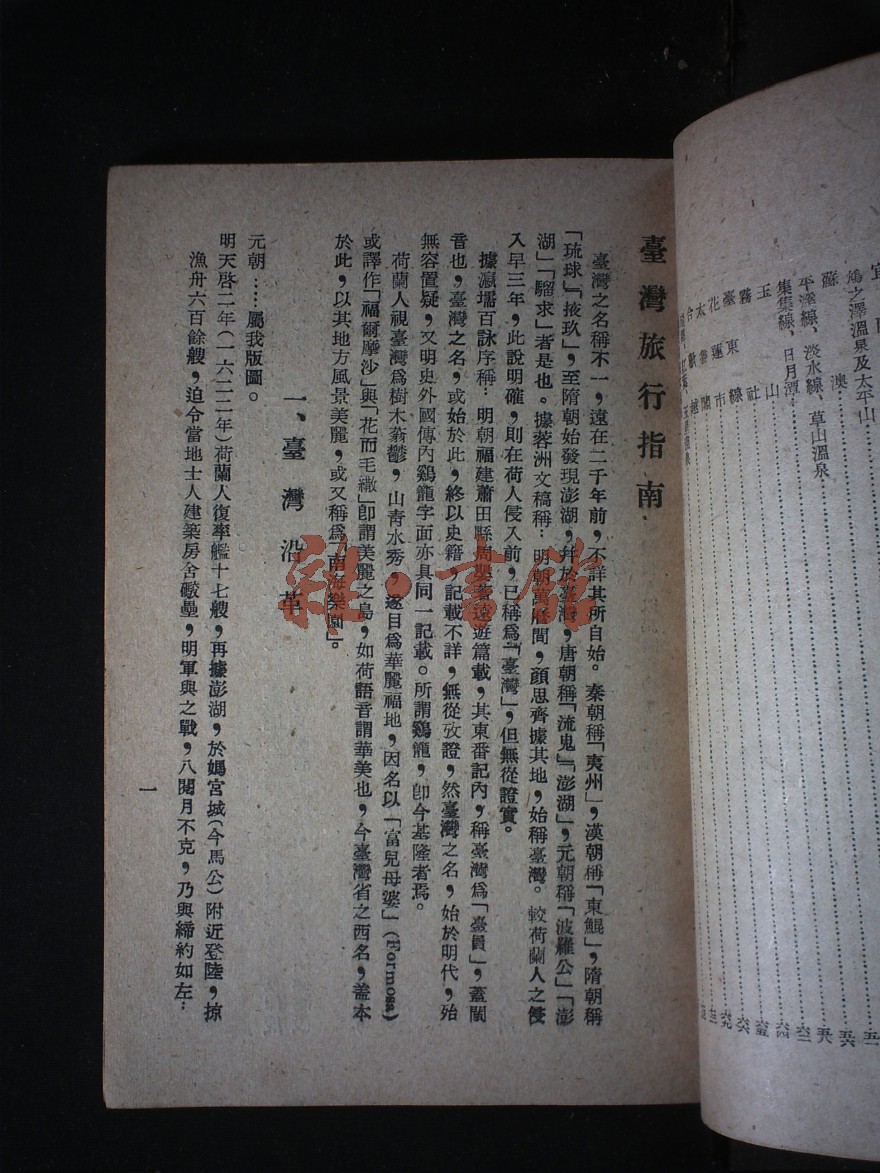 宜
鳩之澤溫泉及太平山
蘇澳
平溪線、淡水線、草山溫泉
集集線、日月潭
玉山
霧社
臺東線
花蓮市
太魯閣
合歡越
臺灣旅行指南
臺灣之名稱不一，遠在二千年前，不詳其所自始。秦朝稱「夷州」，漢朝稱「東鯤」，隋朝稱
「琉球」「掖玖」，至隋朝始發現澎湖，幷於臺灣，唐朝稱「流鬼」「澎湖」，元朝稱「波羅公」「澎
湖」「騮求」者是也。據蓉洲文稿稱：明朝萬曆間，顔思齊據其地，始稱臺灣。較荷蘭人之侵
入早三年，此說明確，則在荷人侵入前，已稱爲「臺灣」，但無從證實。
據瀛壖百詠序稱：明朝福建莆田縣周嬰著遠遊篇載，其東番記內，稱臺灣爲「臺員」，蓋閩
音也，臺灣之名，或始於此，終以史籍，記載不詳，無從攷證，然臺灣之名，始於明代，殆
無容置疑，又明史外國傳內鷄龍字面亦具同一記載。所謂鷄龍，卽今基隆者焉。
荷蘭人視臺灣爲樹木蓊鬱，山靑水秀，遂目爲華麗福地，因名以「富兒母婆」(Formosa)
或譯作「福爾摩沙」與「花而毛繖」卽謂美麗之島，如荷語音謂華美也，今臺灣省之西名，盖本
於此，以其地方風景美麗，或又稱爲「南海樂園」。
一、臺灣沿革
元朝……屬我版圖。
明天啓二年(一六二二年)荷蘭人復率艦十七艘，再據澎湖，於媽宮城(今馬公)附近登陸，掠
漁舟六百餘艘，迫令當地士人建築房舍礮壘，明軍與之戰，八閱月不克，乃與締約如左：
一
雜·書館